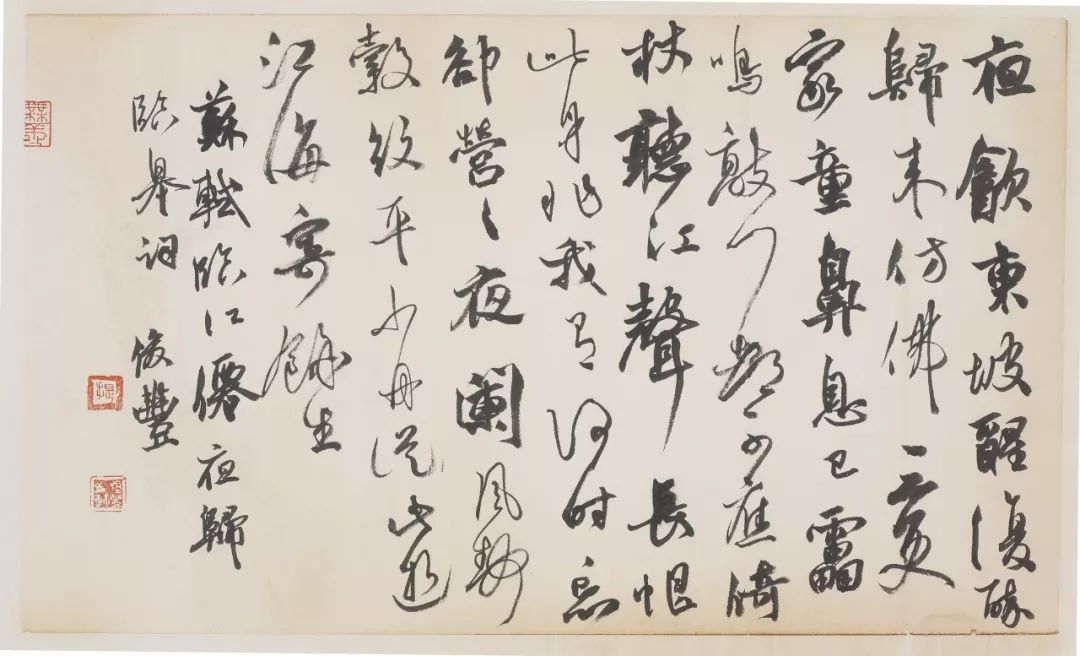 夜飲東坡醒復醉
歸来仿佛三更
家童鼻息已靁
鳴敲门都不應倚
杖聽江聲長恨
此身非我有何时忘
卻營〻夜闌風静
縠紋平小舟從此逝
江海寄餘生
蘇軾臨江僊夜歸
臨皋詞 俊豐